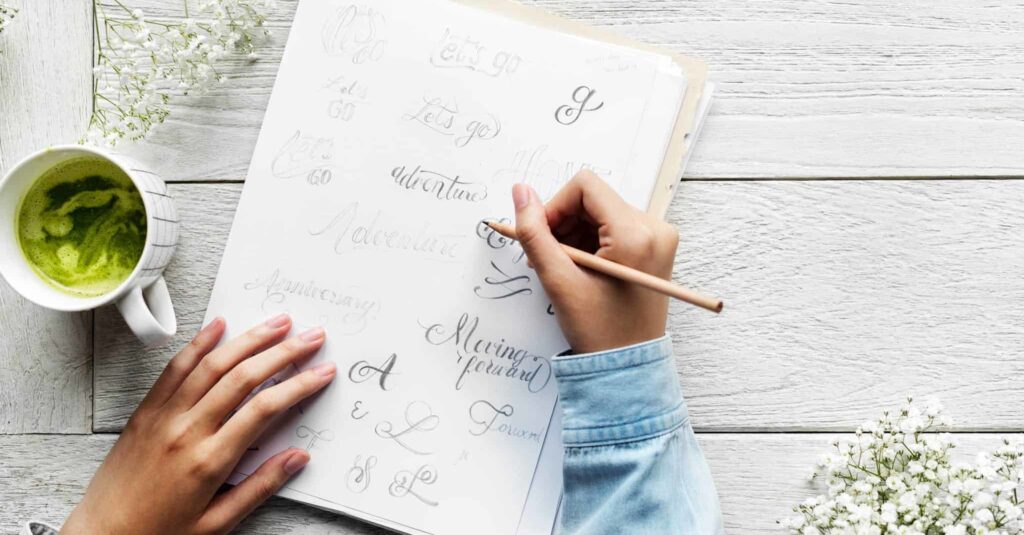 Let's go
Let's go
g
Let's
GO
Let's go
Let's
GO
adventure
Adventure
Anniversary
Moving
forward
A
E
L
Forward
T
S
L